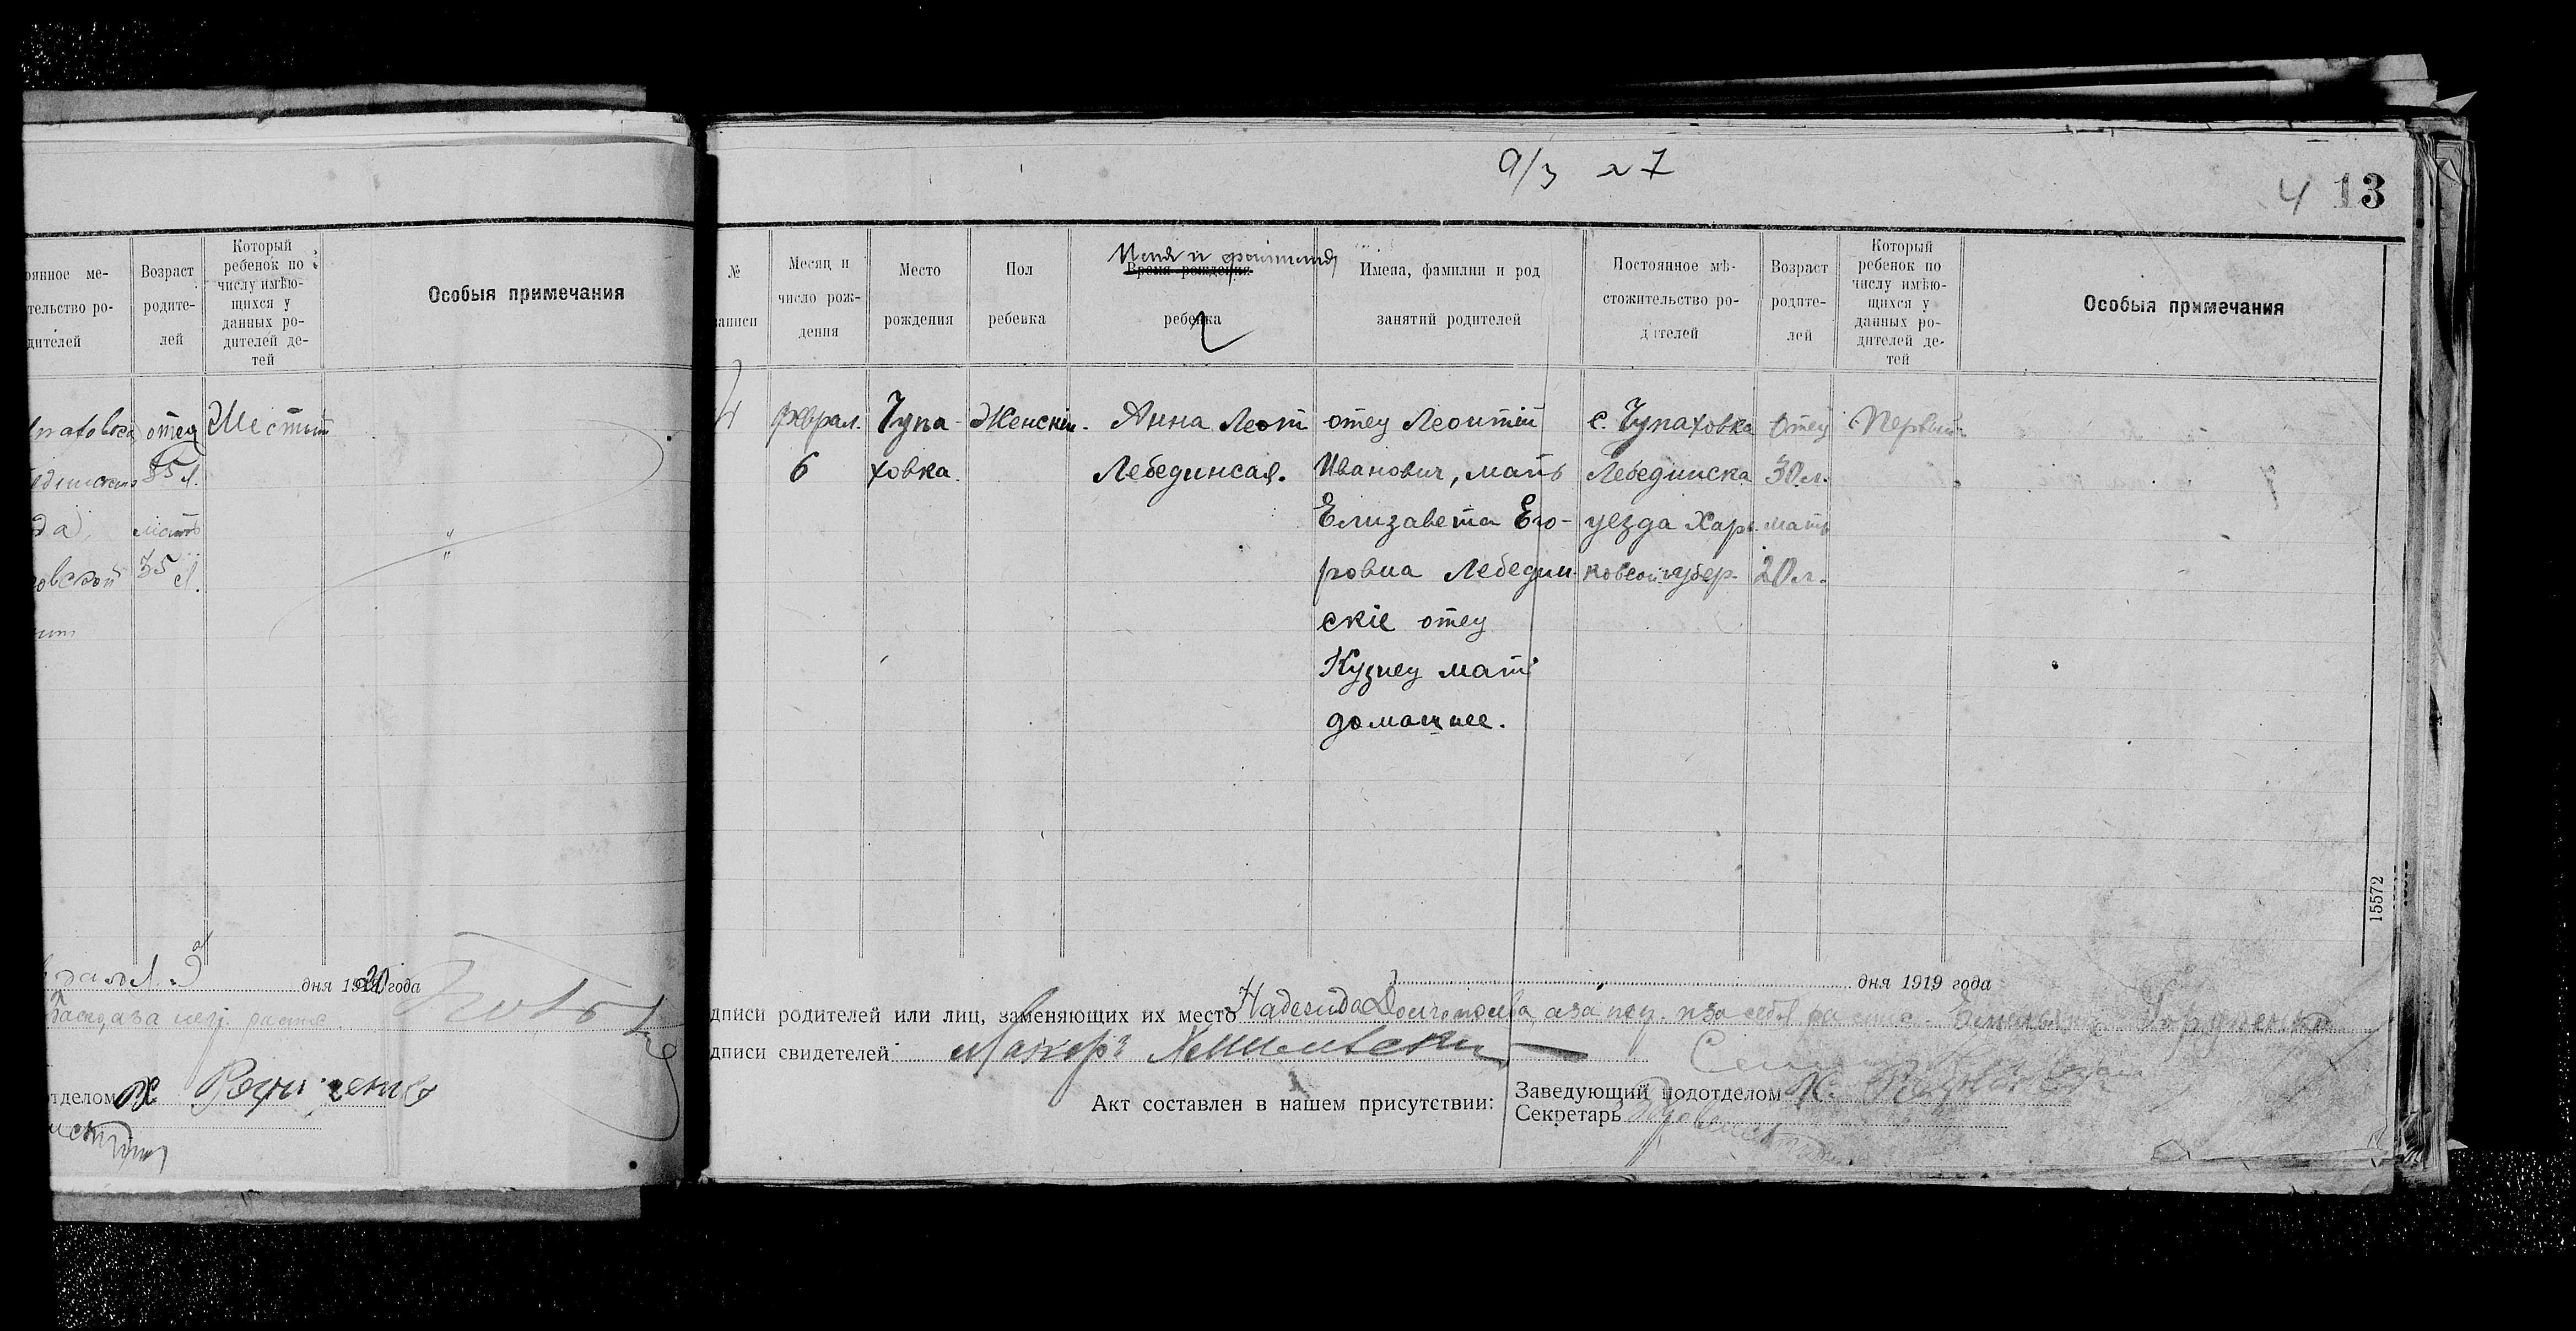 9/3 27
4 13
оянное ме-
тельство ро-
дителей
Возраст
родите-
лей
Который
ребенок по
числу имѣю-
щихся у
данных ро-
дителей де-
тей
Особыя примечания
отец
Шестый
35 л.
мать
35 л.
овской
дня 1920 года
отделом
№
записи
Месяц и
число рож-
дения
Место
рождения
Пол
ребенка
Имя и фамилия
Время рождения
ребенка
Имена, фамилии и род
занятий родителей
Постоянное мѣ-
стожительство ро-
дителей
Возраст
родите-
лей
Который
ребенок по
числу имѣю-
щихся у
данных ро-
дителей де-
тей
Особыя примечания
4
феврал.
6
Чупа-
ховка.
Женскій.
Анна Леонт
Лебединсая.
отец Леонтій
Иванович, мать
Елизавета Его-
ровна Лебедин-
скіе отец
Кузнец мать
домашнее.
с. Чупаховка
Лебединска
уезда Харь-
ковсой губер.
Отец
30 л.
мать
20 л.
Первый
15572
дня 1919 года
дписи родителей или лиц, заменяющих их место Надежда
дписи свидетелей
Акт составлен в нашем присутствии:
Заведующий подотделом
Секретарь